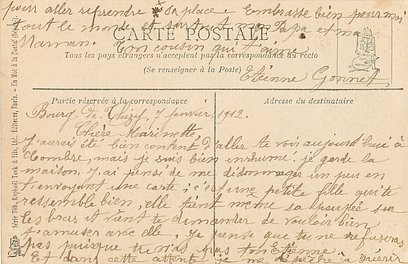 pour aller reprendre sa place. Embrasse bien pour moi
tout le monde et surtout mon Papa et ma
Maman. Ton cousin qui t'aime
Etienne Gonnet
CARTE POSTALE
Tous les pays étrangers n'acceptent pas la correspondance au recto
(Se renseigner à la Poste)
Partie réservée à la correspondance
Adresse du destinataire
Bourg de Thizy, 7 janvier 1912.
Chère Marinette,
J'aurais été bien content d'aller te voir aujourd'hui à
Combre, mais je suis bien enrhumé, je garde la
maison. J'ai pensé de me dédommager un peu en
t'envoyant une carte; c'est une petite fille qui te
ressemble bien, elle tient même sa poupée sur
les bras et vient te demander de vouloir bien
t'amuser avec elle. Je pense que tu ne refuseras
pas puisque tu n'as pas ton Etienne.
Et dans cette attente je me dépêche à guérir